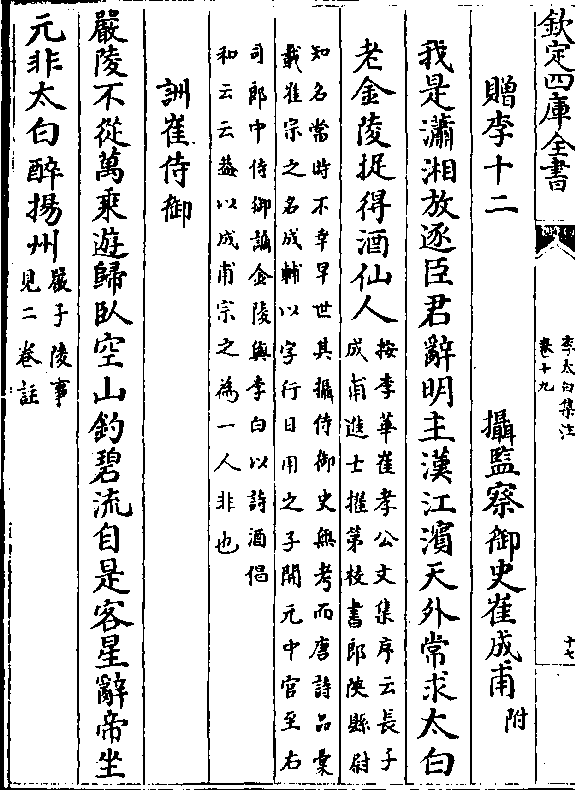 欽定四庫全書
李太白集注
卷十九
十七
贈李十二
攝監察御史崔成甫附
我是瀟湘放逐臣君辭明主漢江濱天外常求太白
老金陵捉得酒仙人
按李華崔孝公文集序云長子
成甫進士擢第校書郎陝縣尉
知名當時不幸早世其攝侍御史無考而唐詩品彙
載崔宗之名成輔以字行日用之子開元中官至右
司郎中侍御謫金陵與李白以詩酒倡
和云云蓋以成甫宗之為一人非也
訓崔侍御
嚴陵不從萬乘遊歸臥空山釣碧流自是客星辭帝坐
元非太白醉揚州
嚴子陵事
見二卷註